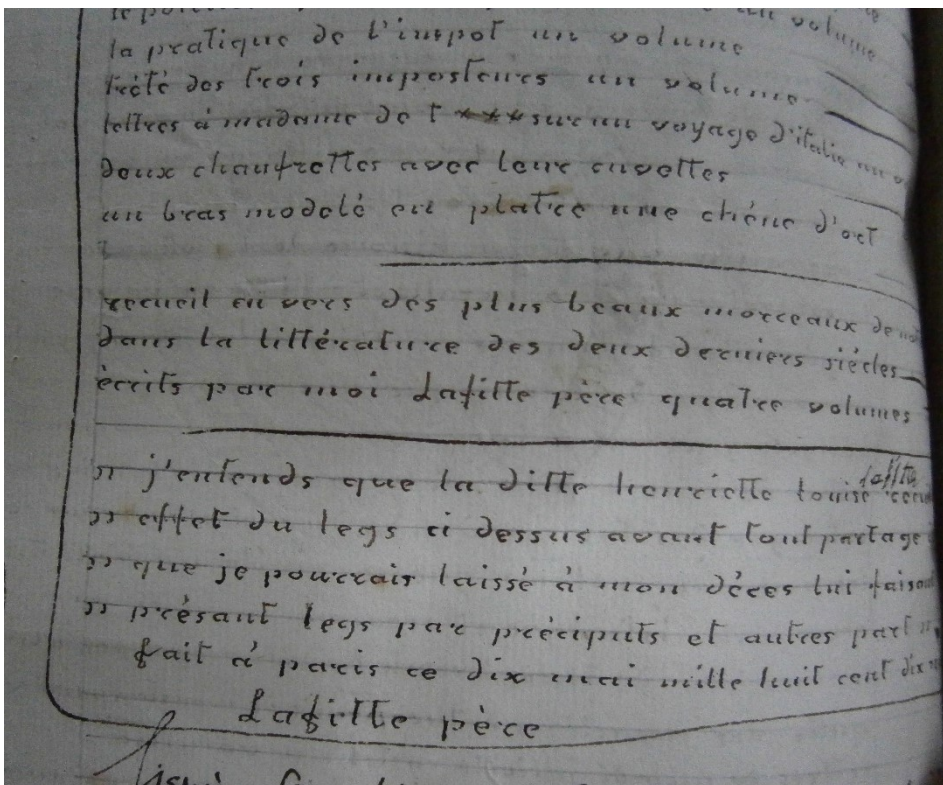 un volume
la pratique de l'impot un volume
trété des trois imposteurs un volume
lettres à madame de t *** sur un voyage d'italie un
deux chaufrettes avec leur cuvettes
un bras modelé en platre une chéne d'or
recueil en vers des plus beaux morceaux de
dans la littérature des deux derniers siécles
écrits par moi Lafitte père quatre volumes
lafitte
" j'entends que la ditte henriette louise
" effet du legs ci dessus avant tout partage
" que je pourrais laissé à mon déces lui faisant
" présant legs par préciputs et autres part
fait à paris ce dix mai mille huit cent dix
Lafitte père